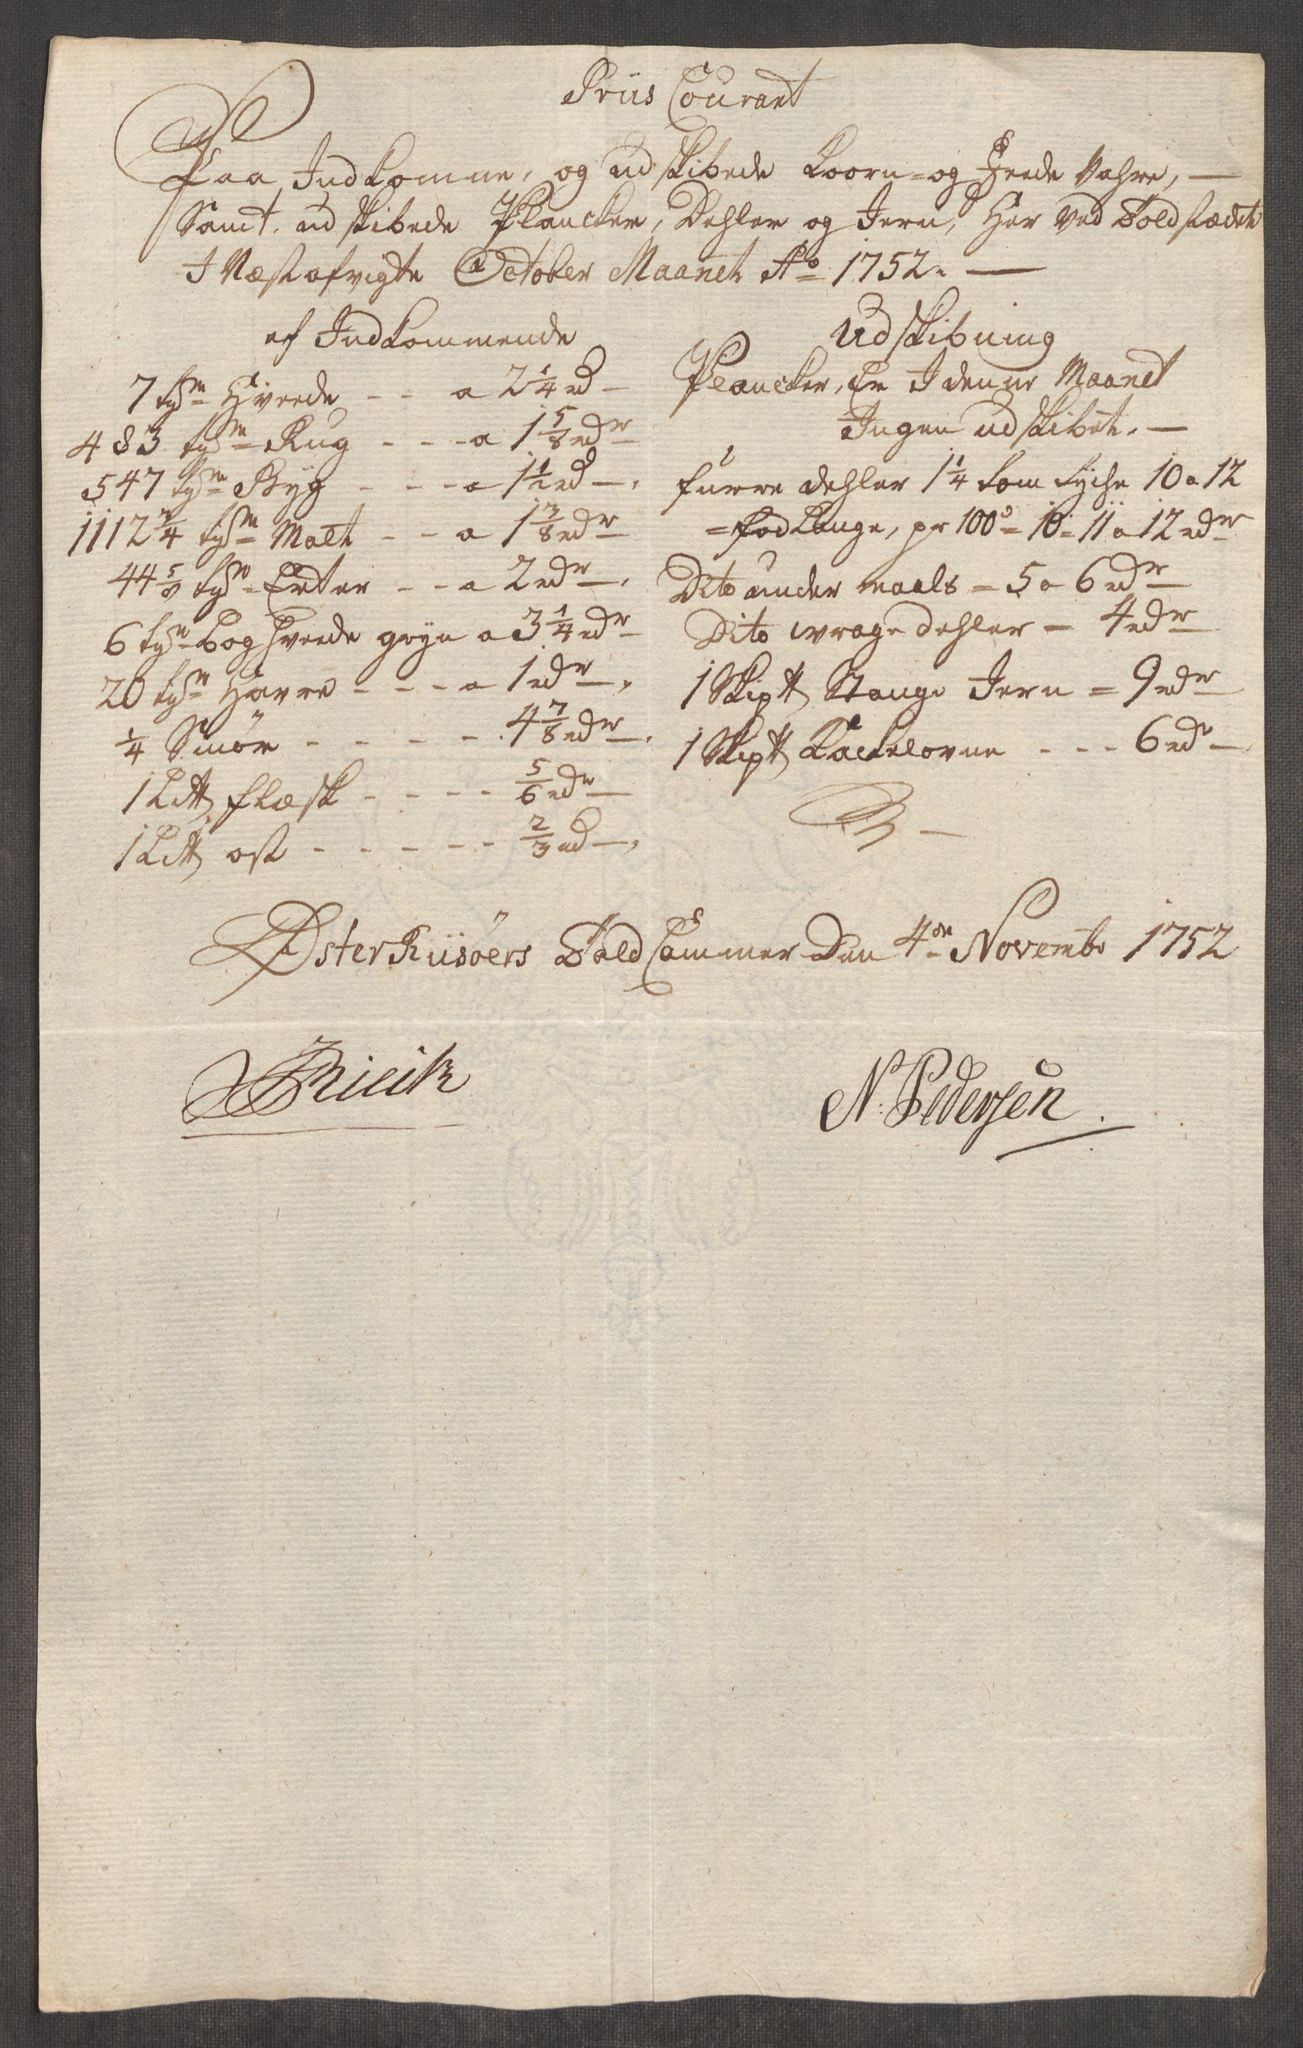 Priis Courant
Paa Indkomne, og udskibede Koorn- og Feede Vahre,
Samt udskibede Plancker, Dehler og Jern, Her Ved Toldstædet
I Næst afvigte October Maanet Ao 1752.
af Indkommende
7 tgr Hvede - - a 2 1/4 rd
483 tgr Rug - - - a 1 5/8 rdr
547 tgr Byg - - - a 1 1/2 rd
1112 3/4 tgr Malt - - a 1 3/8 rdr
44 5/8 tgr Erter - - a 2 rdr
6 tgr boghvede gryn a 3 1/4 rdr
20 tgr Havre - - - a 1 rdr
1/4 Smør - - - - - 4 7/8 rdr
1 L℔ flæsk - - - - 5/6 rdr
1 L℔ ost - - - - - 2/3 rd
Udskibning
Plancker, Er I denne Maanet
Ingen udskibet.
furre dehler 1 1/4 tom tyche 10 a 12
fod Lange, pr 100de 10 - 11 a 12 rdr
Dito under maals = 5 a 6 rdr
Dito wrage dehler = 4 rdr
1 Skip℔ Stange Jern = 9 rdr
1 Skip℔ Kackelovne - - - 6 rdr
ØsterRiisøers Told Cammer Den 4de Novembr 1752
N: Pedersen.